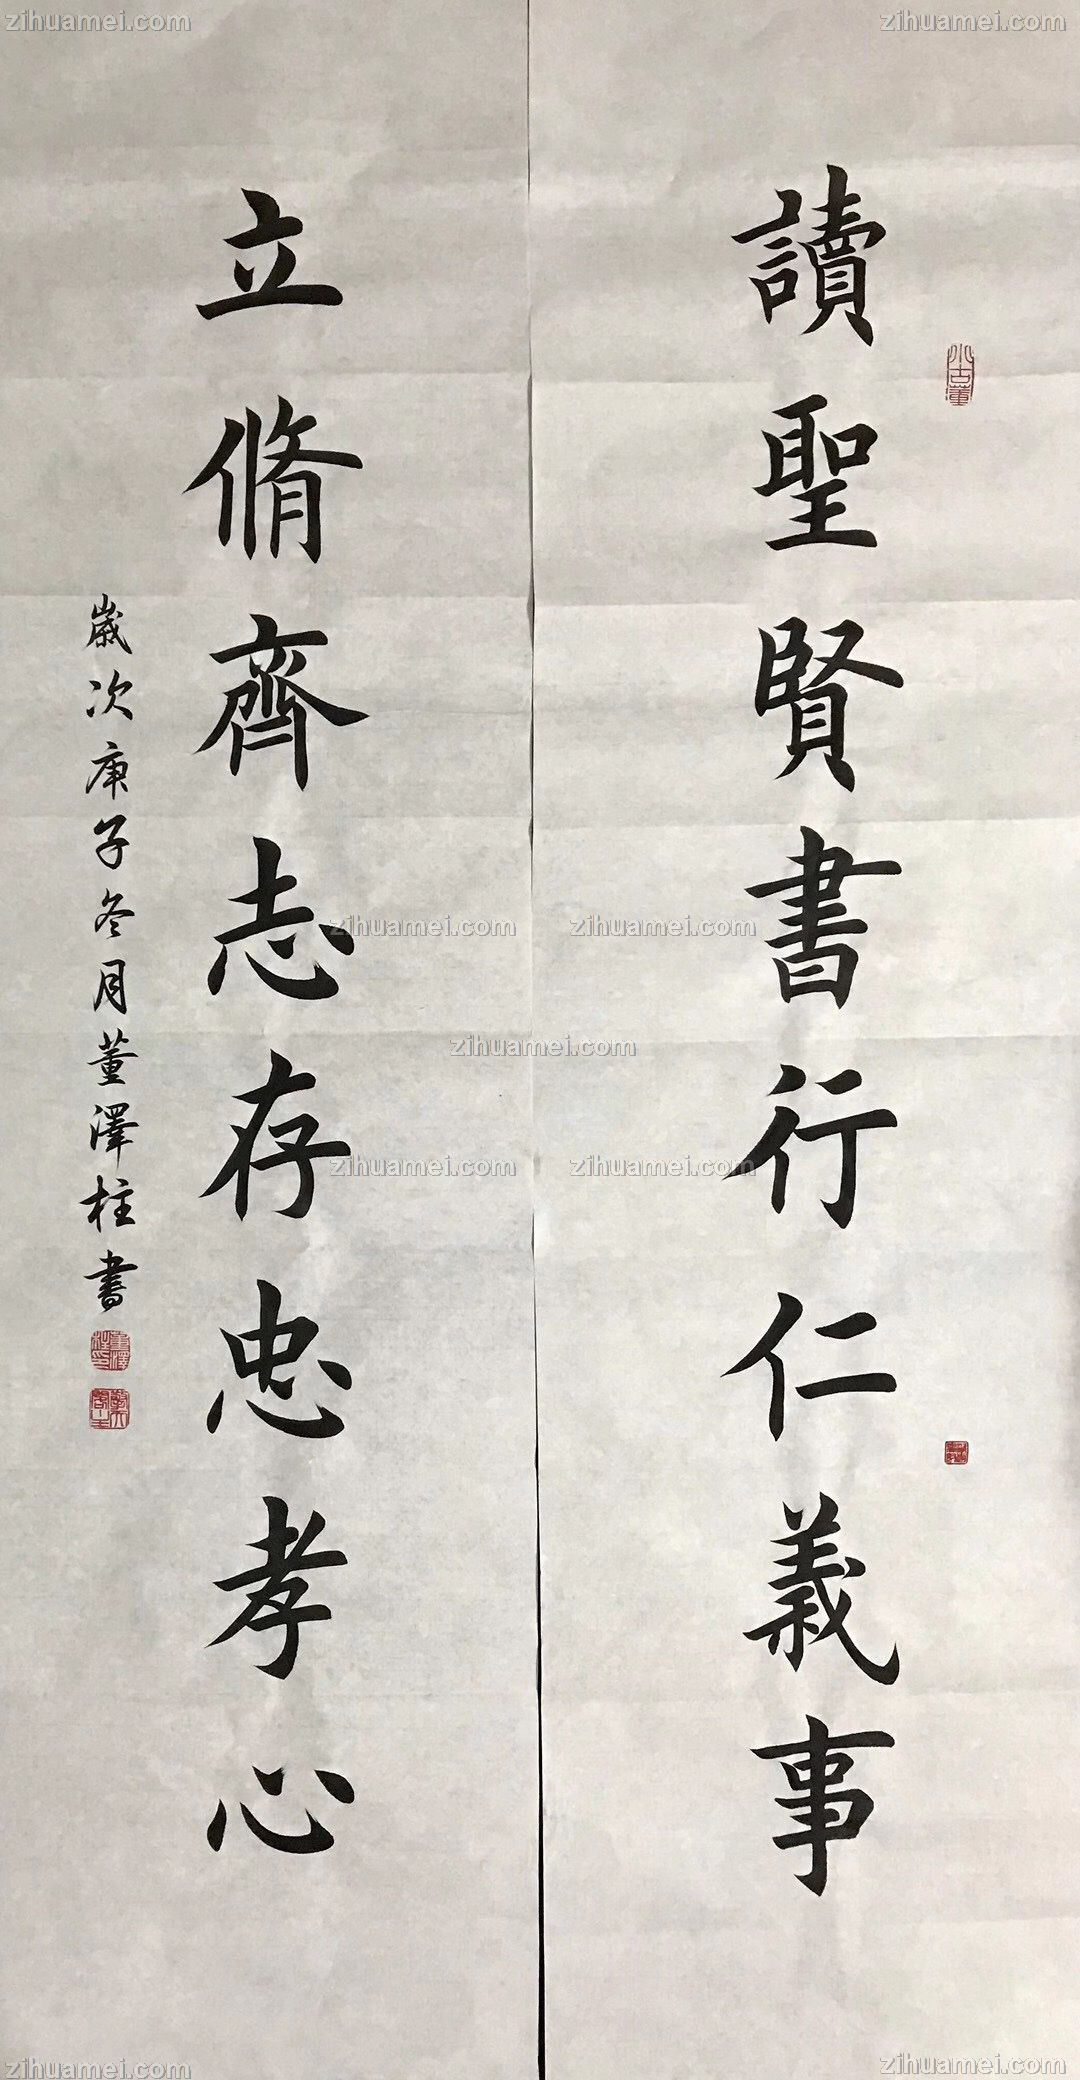 zihuamei.com
zihuamei.com
讀聖賢書行仁義事
立脩齊志存忠孝心
歲次庚子冬月董澤柱書
zihuamei.com
zihuamei.com
zihuamei.com
zihuamei.com
zihuamei.com
zihuamei.com
zihuamei.com